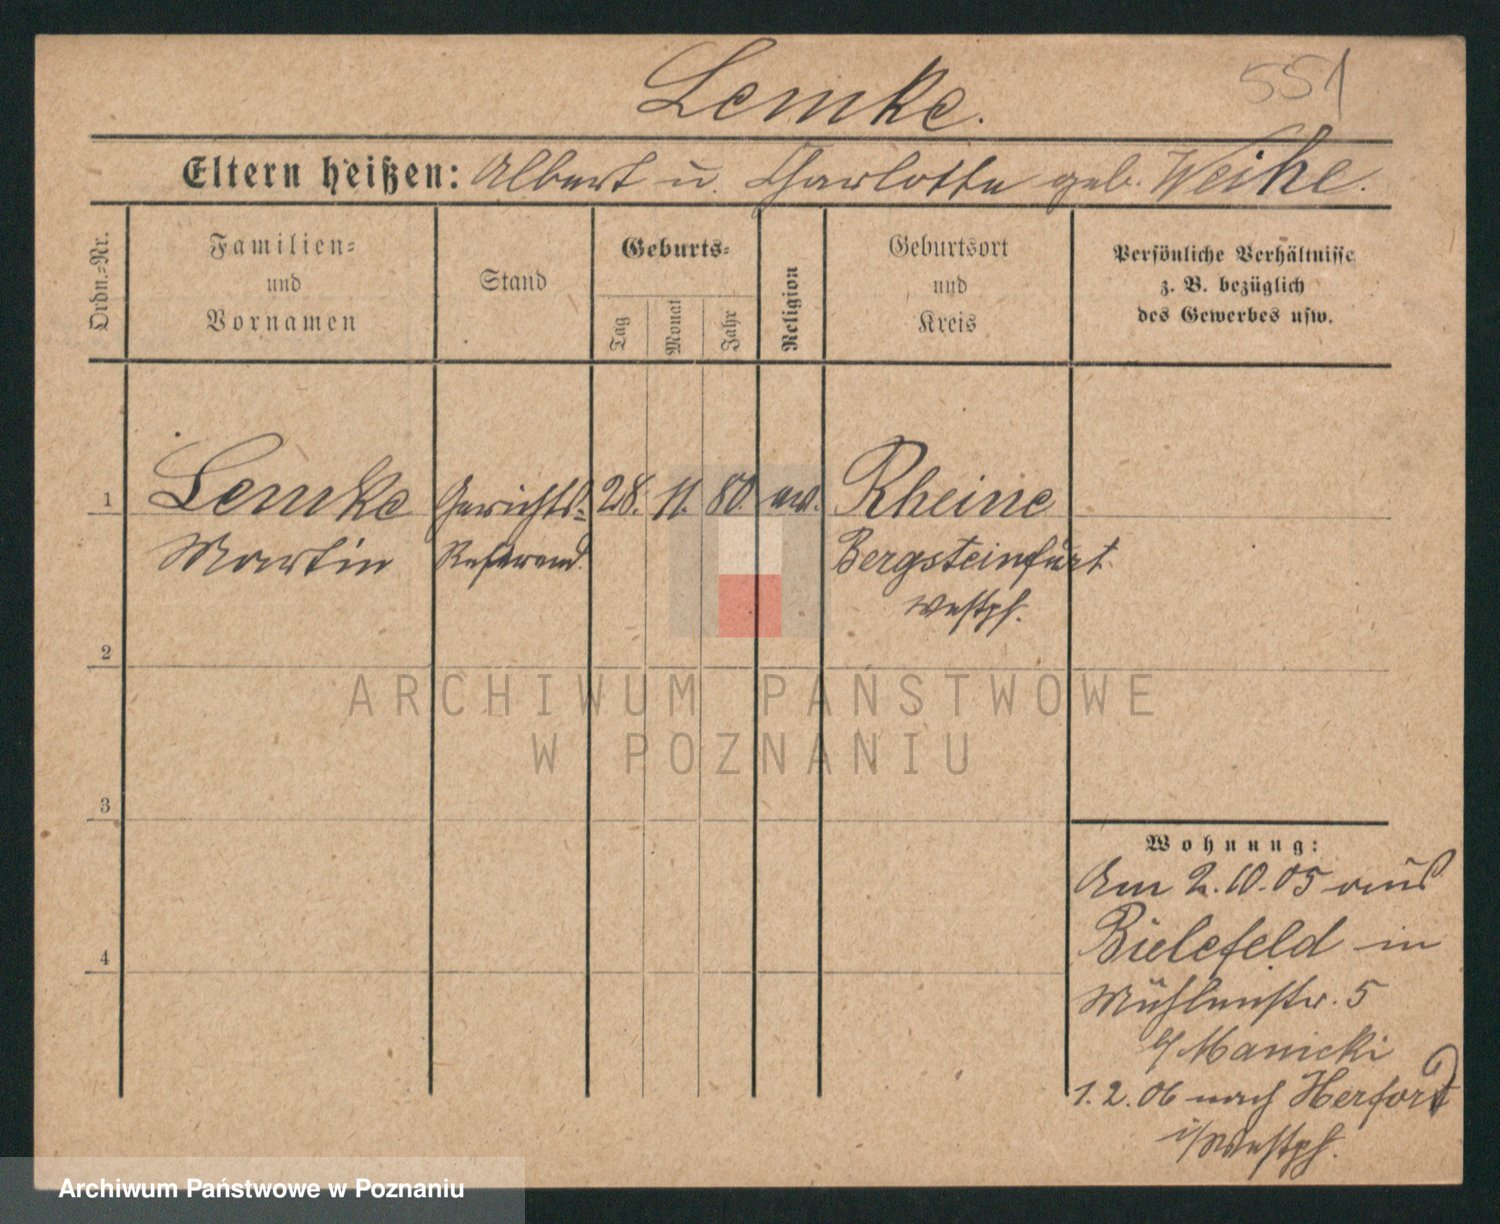 Lemke.
551
Eltern heißen: Albert u. Charlotte geb. Weihe.
Ordn.=Nr.
Familien=
und
Vornamen
Stand
Geburts=
Tag
Monat
Jahr
Religion
Geburtsort
und
Kreis
Persönliche Verhältnisse
z. B. bezüglich
des Gewerbes usw.
1 Lemke Gerichts= 28. 11. 80. ev. Rheine
Martin Referend. Bergsteinfurt
Westph.
2
ARCHIWUM PAŃSTWOWE
W POZNANIU
3
4
Wohnung:
Am 2.10.05 aus
Bielefeld in
Mühlenstr. 5
b/ Manicki
1.2.06 nach Herford
i/Westph.
Archiwum Państwowe w Poznaniu